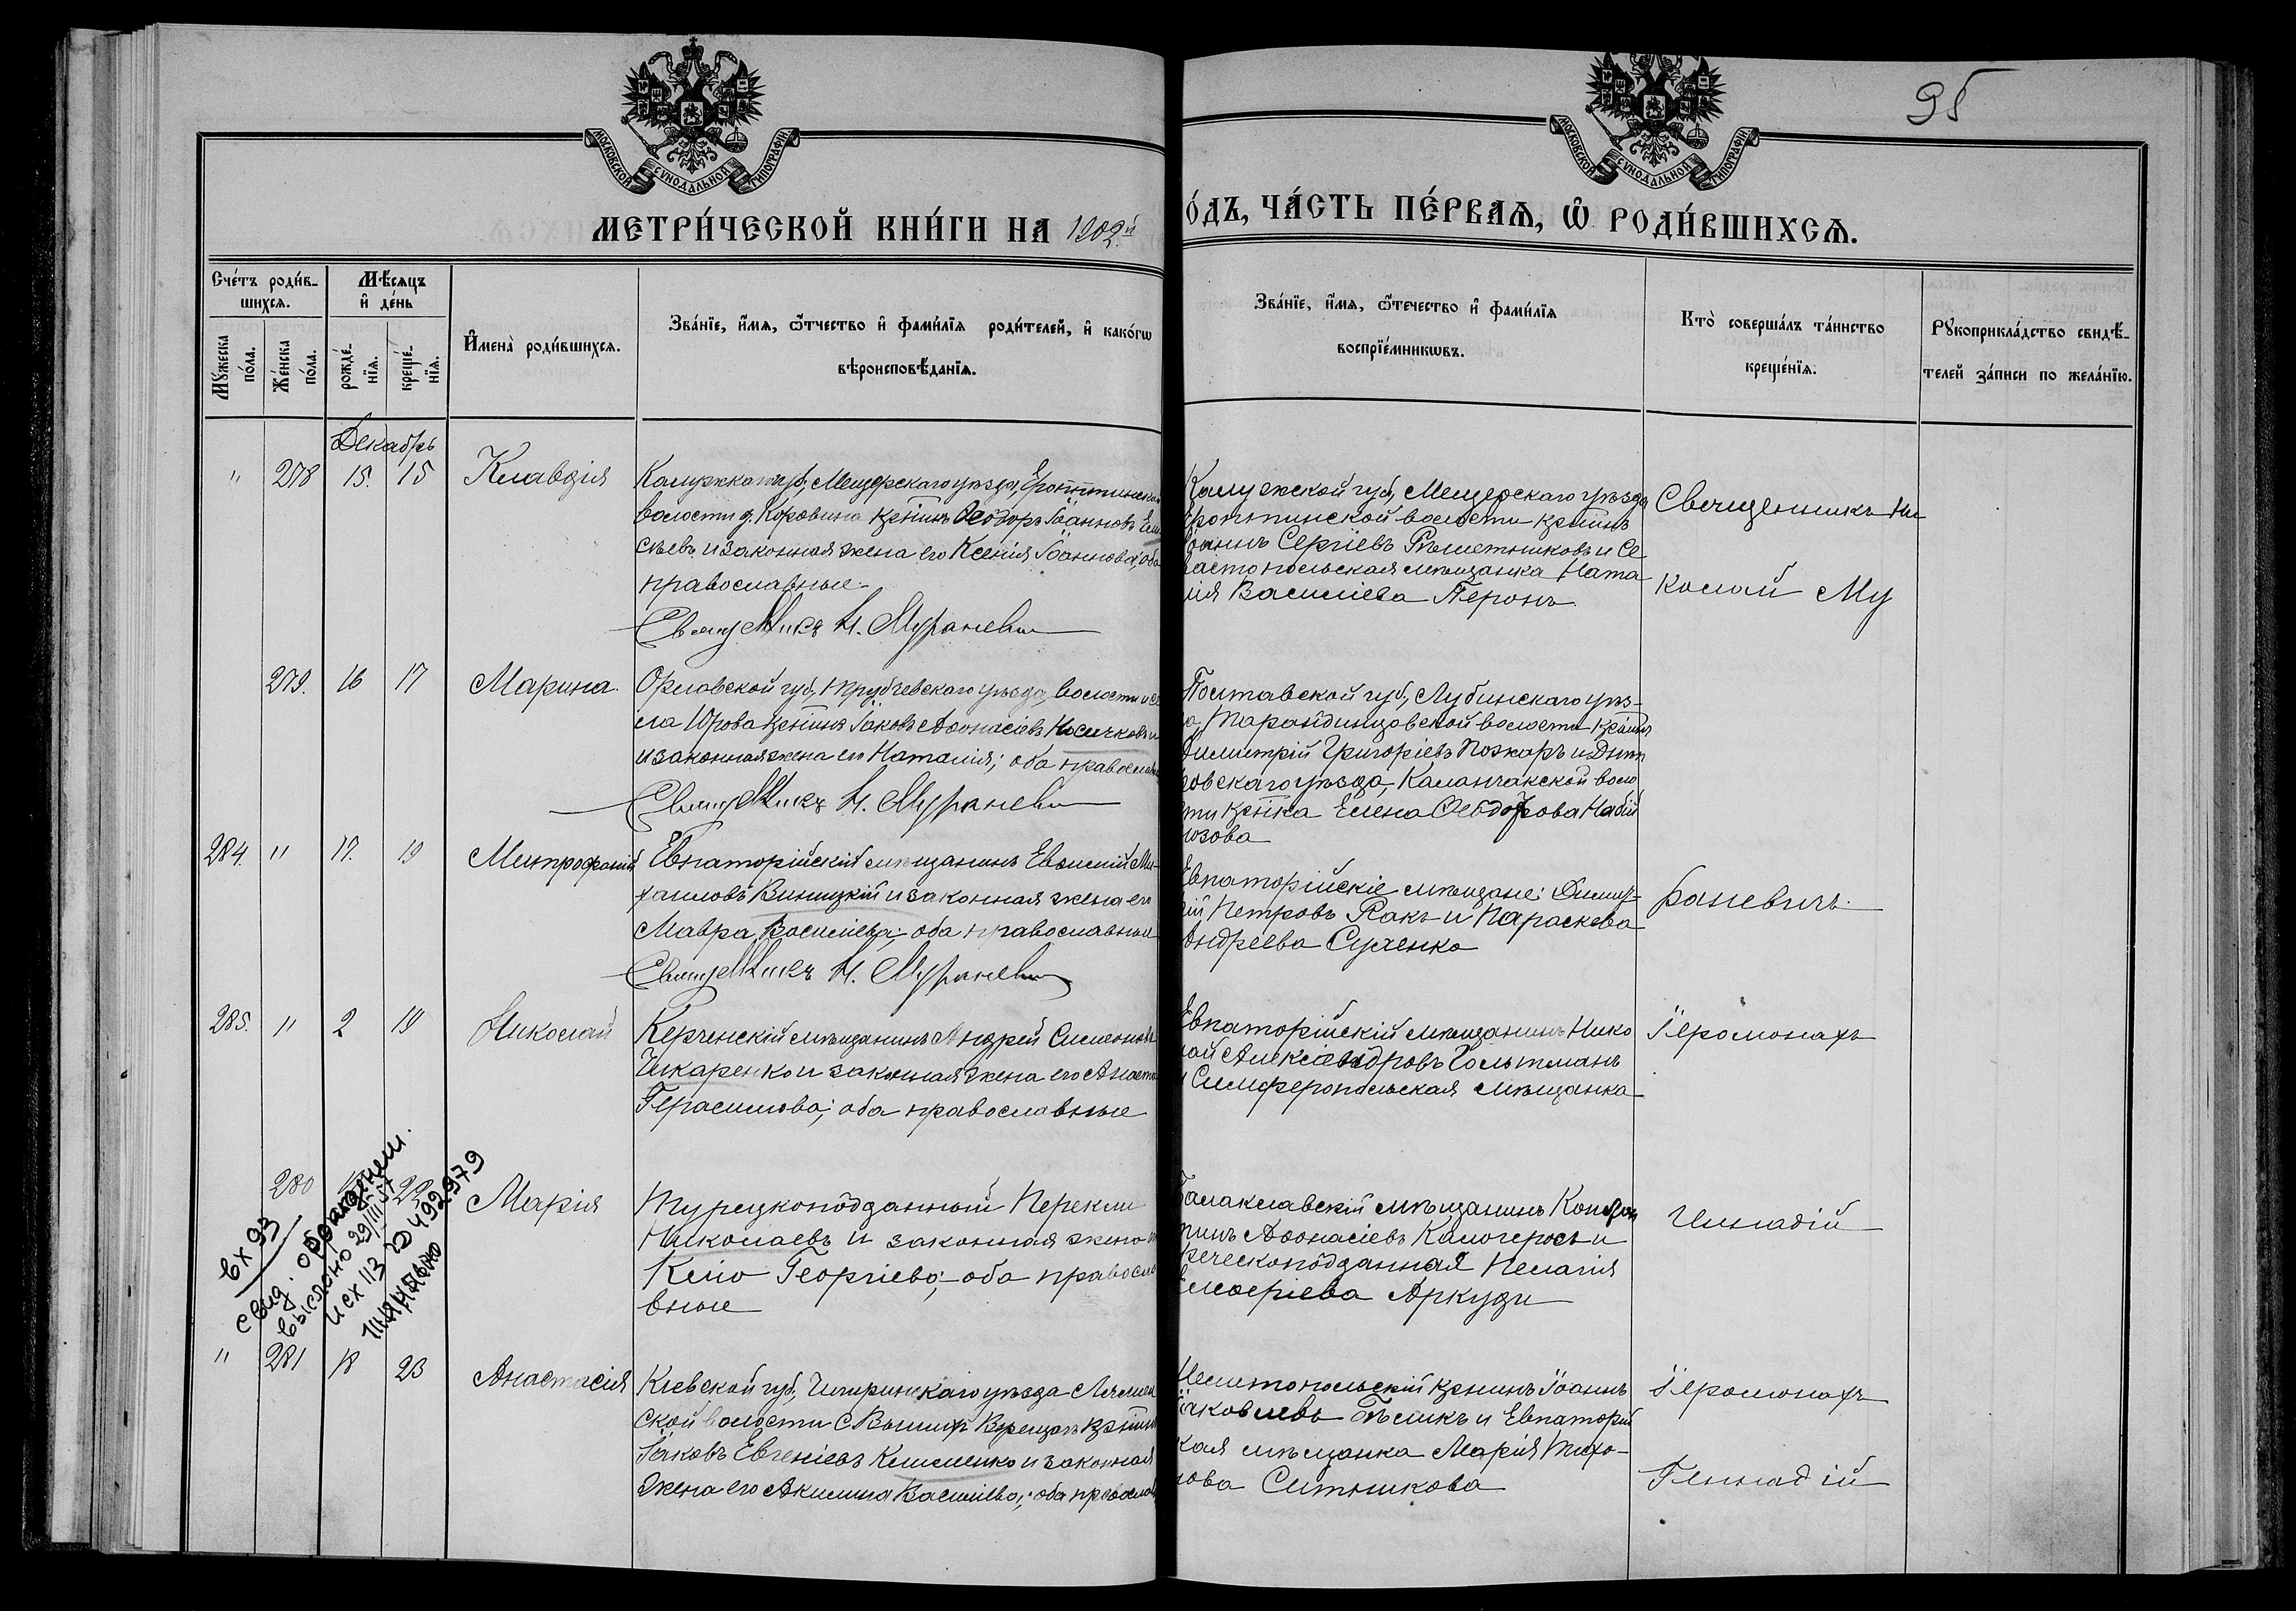 95
МОСКОВСКОЙ СѴНОДАЛЬНОЙ ТИПОГРАФІИ
МОСКОВСКОЙ СѴНОДАЛЬНОЙ ТИПОГРАФІИ
МЕТРИ́ЧЕСКОЙ КНИ́ГИ НА 1909й
О́ДЪ, ЧА́СТЬ ПЕ́РВАѦ, Ѡ҆ РОДИ́ВШИХСѦ.
Сче́тъ роди́в-
шихсѧ.
Мꙋ́жеска
по́ла.
Же́нска
по́ла.
Мѣ́сѧцъ
и҆ де́нь
рожде́-
нїѧ.
креще́-
нїѧ.
И҆мена̀ роди́вшихсѧ.
Зва́нїе, и҆́мѧ, ѻ҆́тчество и҆ фами́лїѧ роди́телей, и҆ како́гѡ
вѣроисповѣ́данїѧ.
Зва́нїе, и҆́мѧ, ѻ҆те́чество и҆ фами́лїѧ
воспрїе́мникѡвъ.
Кто̀ соверша́лъ та́инство
креще́нїѧ.
Рꙋкоприкла́дство свидѣ́-
телей за́писи по жела́нїю.
Декабрь
" 278 15. 15 Клавдія
Калужской губ, Мещерскаго уѣзда,
волости д. Коровина кр̄нинъ Ѳеодоръ Іоанновъ Ели
сѣевъ и законная жена его Ксенія Іоаннова, оба
православные
Священникъ Н. Мураневич
Калужской губ, Мещерскаго уѣзда
волости кр̄нинъ
Іоаннъ Сергіевъ Рѣшетниковъ и Се
вастопольская мѣщанка Ната
лія Василіева Перонъ
Священникъ Ни
колай Му
279. 16 17 Марина
Орловской губ, Трубчевскаго уѣзда, волости и се
ла Юрова кр̄нинъ Іаковъ Аѳонасіевъ Носичковъ
и законная жена его Наталія; оба православ
Священникъ Н. Мураневич
Полтавской губ, Лубинскаго уѣз-
да, Тарандинцовской волости кр̄нинъ
Димитрій Григоріевъ Пожаръ и Днѣп
ровскаго уѣзда, Каланчакской воло
сти кр̄нка Елена Ѳеодорова Набій
возова
284. " 17. 19 Митрофаній
Евпаторійскій мѣщанинъ Евѳимій Ми-
хаиловъ Виницкій и законная жена его
Мавра Василіева; оба православные
Священникъ Н. Мураневич
Евпаторійскіе мѣщане: Димит-
рій Петровъ Ракъ и Параскева
Андреева Сученко
раневичъ
285. " 2 19 Николай
Керченскій мѣщанинъ Андрей Симеоновъ
Шкаренко и законная жена его Анаста
Герасимова; оба православные
Евпаторійскій мѣщанинъ Нико
лай Александровъ Гольтманъ
и Симферопольская мѣщанка
Іеромонахъ
280 22 Марія
Турецкоподданный Перекли
Николаевъ и законная жена
Клио Георгіева; оба правосла
вные
Балаклавскій мѣщанинъ Констан
тинъ Аѳонасіевъ Калогеросъ и
Греческоподданная Пелагія
Елевѳеріева Аркуди
Геннадій
вх 93
свид. о рожден.
выслано 29/III 57
исх 113 492979
" 281 18 23 Анастасія
Кіевской губ, Чигиринскаго уѣзда
ской волости с кр̄нинъ
Іаковъ Евгеніевъ Клименко и законная
жена его Акилина Василіева; оба православ
Мелитопольскій кр̄нинъ Іоаннъ
Іаковлевъ Бѣликъ и Евпаторій
ская мѣщанка Марія Тихо-
нова Ситникова
Іеромонахъ
Геннадій